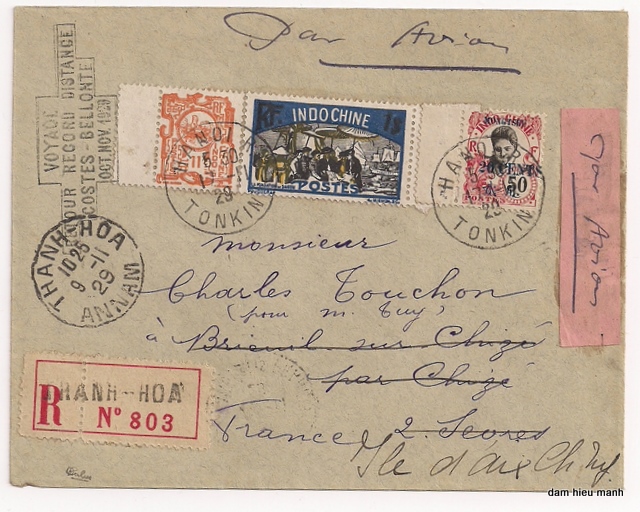 Par Avion
VOYAGE
POUR RECORD DISTANCE
COSTES-BELLONTE
OCT. NOV. 1929
RF INDOCHINE 1$
POSTES
HANOI
TONKIN
29
HANOI
TONKIN
29
INDOCHINE
20 CENTS
50
Par Avion
THANH-HOA
1025
9-11
29
ANNAM
monsieur
Charles Touchon
(pour m. Tuy)
à Brieuil sur Chizé
par Chizé
2. Sevres
France
Ile d'aix Ch. Inf.
THANH-HOA
R N° 803
dam hieu manh